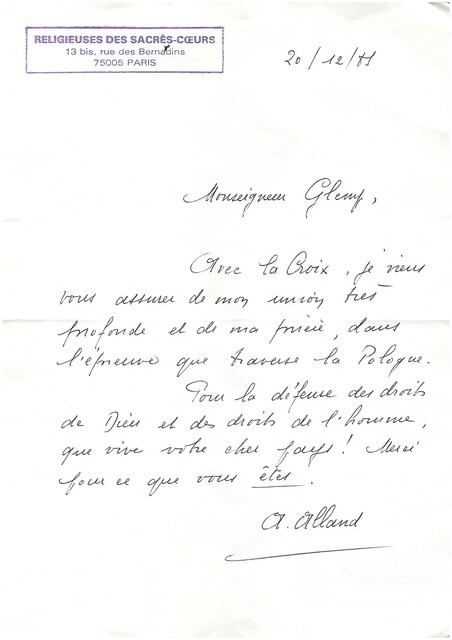 RELIGIEUSES DES SACRÉS-CŒURS
13 bis, rue des Bernardins
75005 PARIS
20/12/81
Monseigneur Glemp,
Avec la Croix, je viens
vous assurer de mon union très
profonde et de ma prière, dans
l'épreuve que traverse la Pologne.
Pour la défense des droits
de Dieu et des droits de l'homme,
que vive votre cher pays ! Merci
pour ce que vous êtes.
A. Alland